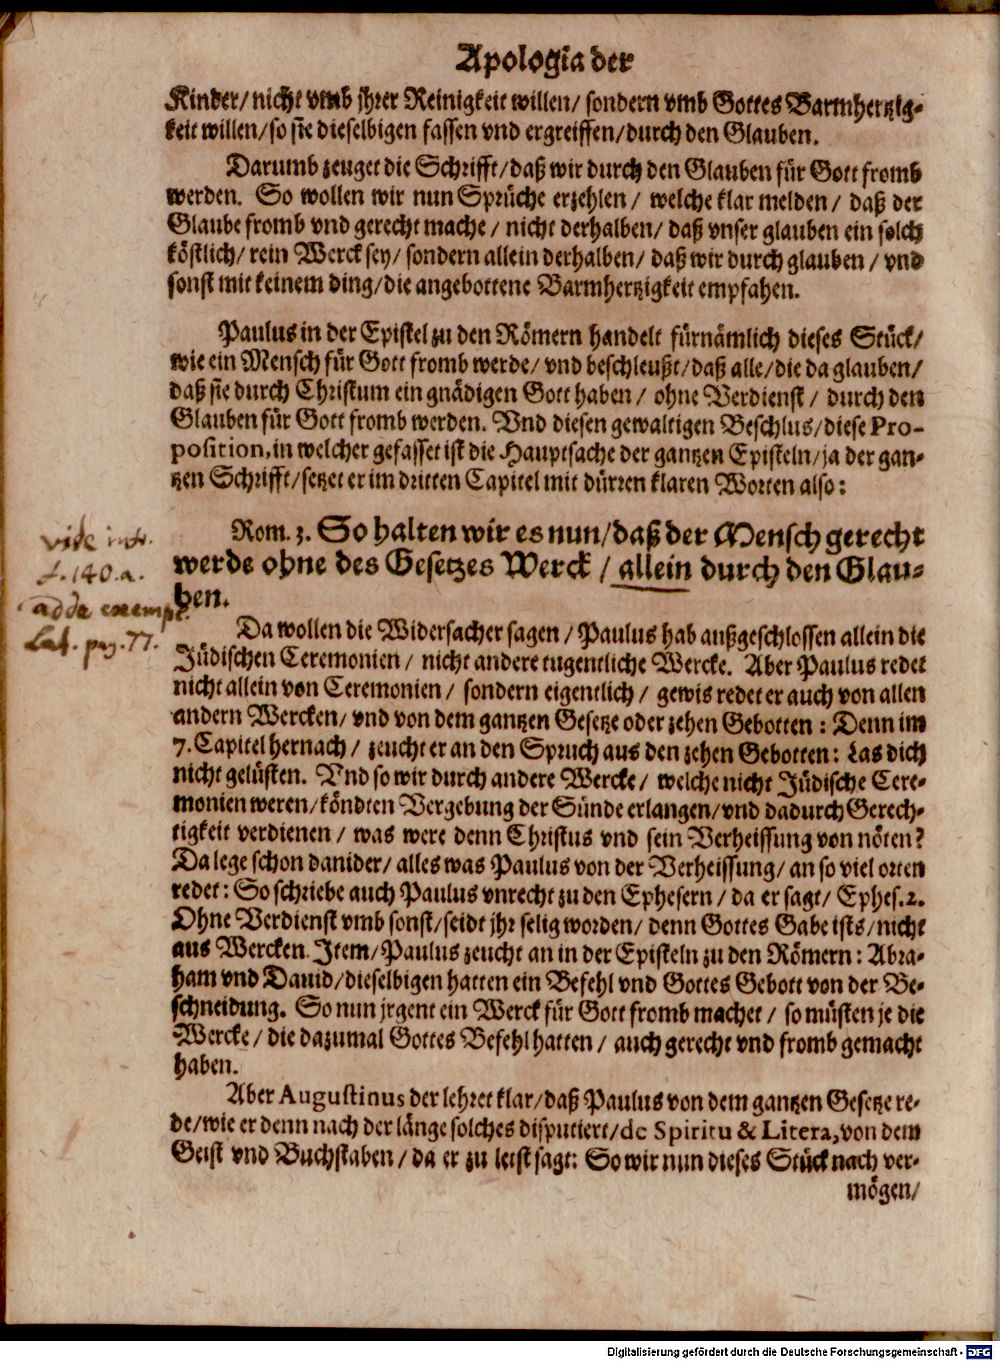 Apologia der
Kinder/ nicht vmb jhrer Reinigkeit willen/ sondern vmb Gottes Barmhertzig-
keit willen/ so sie dieselbigen fassen vnd ergreiffen/ durch den Glauben.
Darumb zeuget die Schrifft/ daß wir durch den Glauben für Gott fromb
werden. So wollen wir nun Sprüche erzehlen/ welche klar melden/ daß der
Glaube fromb vnd gerecht mache/ nicht derhalben/ daß vnser glauben ein solch
köstlich/ rein Werck sey/ sondern allein derhalben/ daß wir durch glauben/ vnd
sonst mit keinem ding/ die angebottene Barmhertzigkeit empfahen.
Paulus in der Epistel zu den Römern handelt fürnämlich dieses Stück/
wie ein Mensch für Gott fromb werde/ vnd beschleußt/ daß alle/ die da glauben/
daß sie durch Christum ein gnädigen Gott haben/ ohne Verdienst/ durch den
Glauben für Gott fromb werden. Vnd diesen gewaltigen Beschlus/ diese Pro-
position, in welcher gefasset ist die Hauptsache der gantzen Episteln/ ja der gan-
tzen Schrifft/ setzet er im dritten Capitel mit dürren klaren Worten also:
Rom. 3. So halten wir es nun/ daß der Mensch gerecht
werde ohne des Gesetzes Werck/ allein durch den Glau-
ben.
vide infr.
f. 140. a.
adde exempl.
Lat. pag. 77.
Da wollen die Widersacher sagen/ Paulus hab außgeschlossen allein die
Jüdischen Ceremonien/ nicht andere tugentliche Wercke. Aber Paulus redet
nicht allein von Ceremonien/ sondern eigentlich/ gewis redet er auch von allen
andern Wercken/ vnd von dem gantzen Gesetze oder zehen Gebotten: Denn im
7. Capitel hernach/ zeucht er an den Spruch aus den zehen Gebotten: Las dich
nicht gelüsten. Vnd so wir durch andere Wercke/ welche nicht Jüdische Cere-
monien weren/ köndten Vergebung der Sünde erlangen/ vnd dadurch Gerech-
tigkeit verdienen/ was were denn Christus vnd sein Verheissung von nöten?
Da lege schon danider/ alles was Paulus von der Verheissung/ an so viel orten
redet: So schriebe auch Paulus vnrecht zu den Ephesern/ da er sagt/ Ephes. 2.
Ohne Verdienst vmb sonst/ seidt jhr selig worden/ denn Gottes Gabe ists/ nicht
aus Wercken. Item/ Paulus zeucht an in der Episteln zu den Römern: Abra-
ham vnd Dauid/ dieselbigen hatten ein Befehl vnd Gottes Gebott von der Be-
schneidung. So nun jrgent ein Werck für Gott fromb machet/ so müsten je die
Wercke/ die dazumal Gottes Befehl hatten/ auch gerecht vnd fromb gemacht
haben.
Aber Augustinus der lehret klar/ daß Paulus von dem gantzen Gesetze re-
de/ wie er denn nach der länge solches disputiert/ de Spiritu & Litera, von dem
Geist vnd Buchstaben/ da er zu letst sagt: So wir nun dieses Stück nach ver-
mögen/
Digitalisierung gefördert durch die Deutsche Forschungsgemeinschaft - DFG